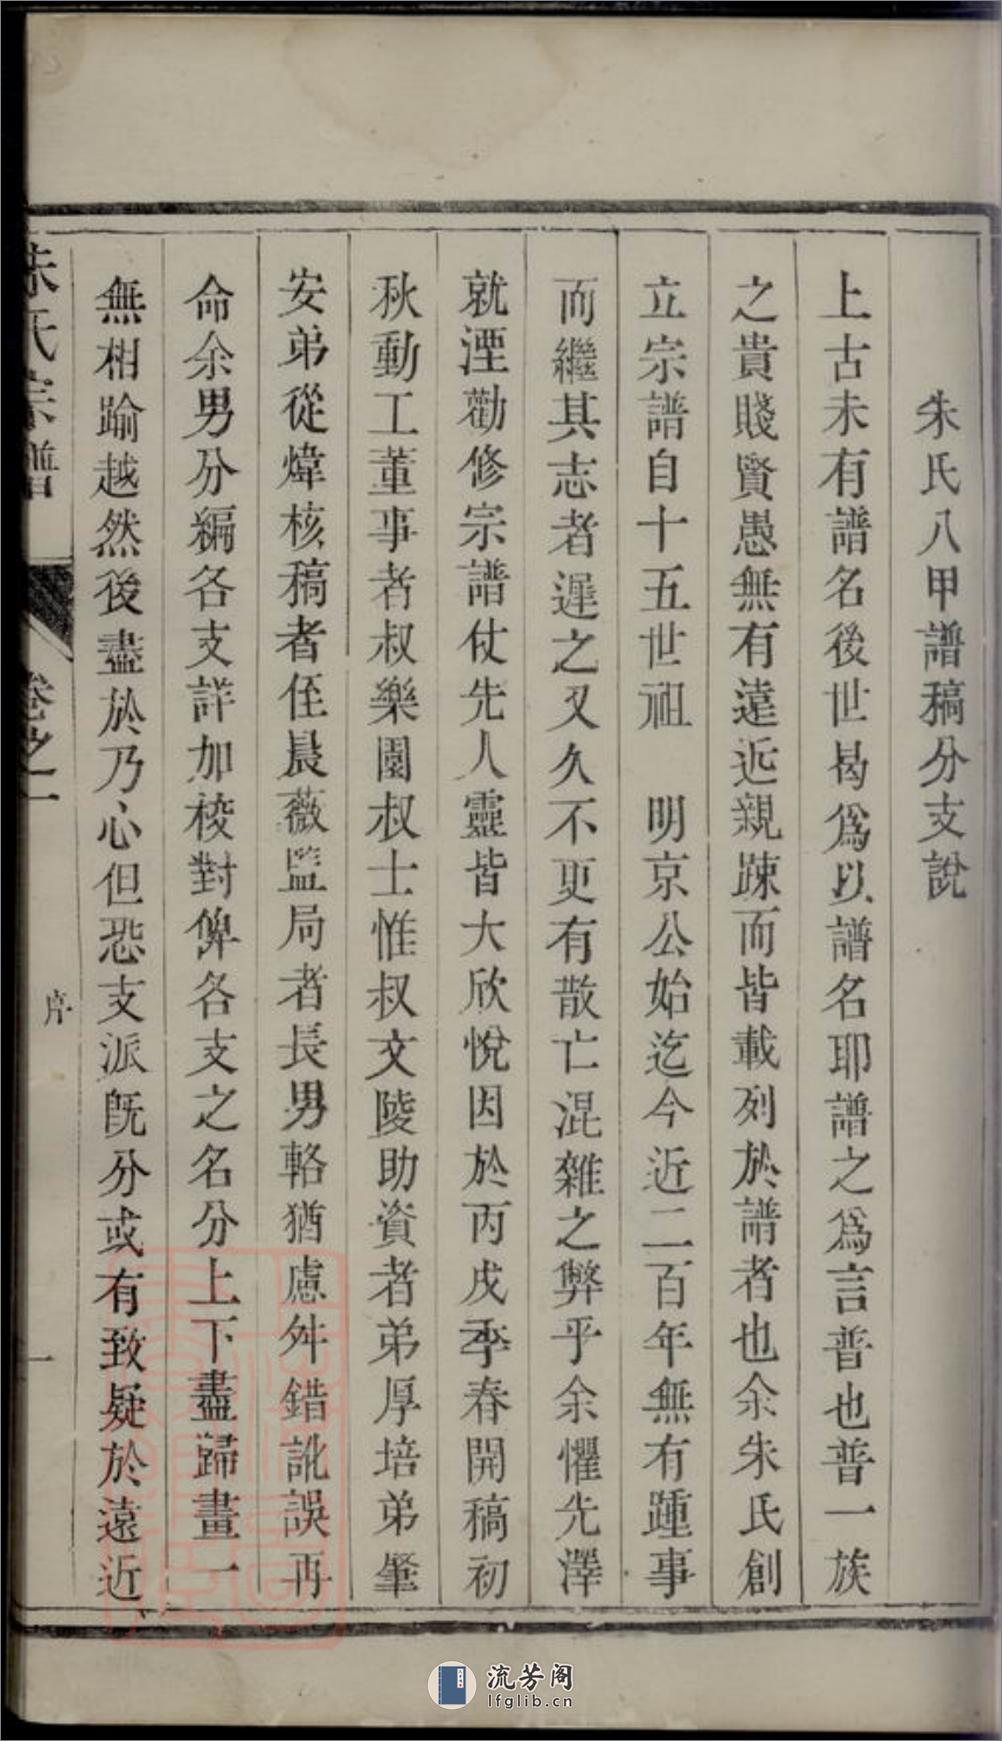 朱氏八甲譜稿分支說
上古未有譜名後世曷為以譜名耶譜之為言普也普一族
之貴賤賢愚無有遠近親踈而皆載列於譜者也余朱氏創
立宗譜自十五世祖　明京公始迄今近二百年無有踵事
而繼其志者遲之又久不更有散亡混雜之弊乎余懼先澤
就湮勸修宗譜仗先人靈皆大欣悅因於丙戌季春開稿初
秋動工董事者叔樂園叔士惟叔文陵助資者弟厚培弟肇
安弟從煒核稿者侄晨薇監局者長男輅猶慮舛錯訛誤再
命余男分編各支詳加稜對俾各支之名分上下盡歸畫一
無相踰越然後盡於乃心但恐支派既分或有致疑於遠近
朱氏宗譜　卷之一　序　一
流芳阁
lfglib.cn